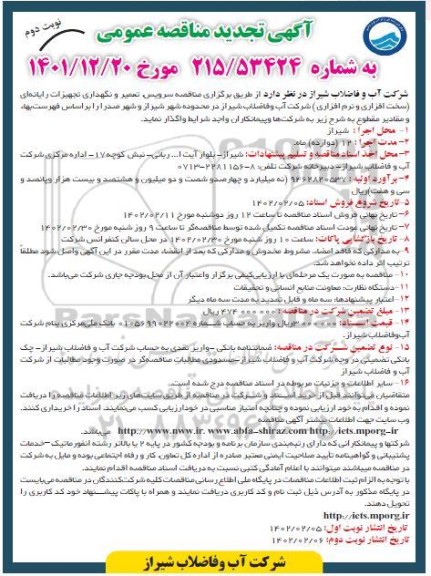 نوبت دوم
آگهی تجدید مناقصه عمومی
به شماره ۲۱۵/۵۳۴۲۴ مورخ ۱۴۰۱/۱۲/۲۰
شرکت آب و فاضلاب شیراز در نظر دارد از طریق برگزاری مناقصه سرویس، تعمیر و نگهداری تجهیزات رایانه‌ای
(سخت افزاری و نرم افزاری) شرکت آب وفاضلاب شیراز در محدوده شهر شیراز و شهر صدرا را بر اساس فهرست‌بها،
و مقادیر مقطوع به شرح زیر به شرکت‌ها وپیمانکاران واجد شرایط واگذار نماید.
۱- محل اجرا: شیراز
۲- مدت اجرا: ۱۲ (دوازده) ماه.
۳- محل اخذ اسناد مناقصه و تسلیم پیشنهادات: شیراز- بلوار آیت ا... ربانی- نبش کوچه ۱۷- اداره مرکزی شرکت
آب و فاضلاب شیراز- دبیرخانه شرکت تلفن: ۸-۳۲۲۸۱۱۵۶-۰۷۱
۴- برآورد اولیه: ۹۴۶۲۸۲۰۵۳۷ (نه میلیارد و چهارصدو شصت و دو میلیون و هشتصد و بیست هزار وپانصد و
سی و هفت) ریال
۵- تاریخ شروع فروش اسناد: ۱۴۰۲/۰۲/۰۵
۶- تاریخ نهائی فروش اسناد مناقصه تا ساعت ۱۲ روز دوشنبه مورخ ۱۴۰۲/۰۲/۱۱
۷- تاریخ نهائی عودت اسناد مناقصه تکمیل شده توسط مناقصه‌گر تا ساعت ۹ روز شنبه مورخ ۱۴۰۲/۰۲/۳۰
۸- تاریخ بازگشایی پاکات: ساعت ۱۰ روز شنبه مورخ ۱۴۰۲/۰۲/۳۰ در محل سالن کنفرانس شرکت
۹- به مدارکی که فاقد امضاء، مشروط مخدوش و مدارکی که بعد از انقضاء مدت مقرر در این آگهی واصل شود مطلقاً
ترتیب اثر داده نخواهد شد.
۱۰- مناقصه به صورت یک مرحله‌ای با ارزیابی کیفی برگزار و اعتبار آن از محل بودجه جاری شرکت می‌باشد.
۱۱- دستگاه نظارت: معاونت منابع انسانی و تحقیقات
۱۲- اعتبار پیشنهادها: سه ماه و قابل تمدید به مدت سه ماه دیگر
۱۳- مبلغ تضمین شرکت در مناقصه: ۴۷۴.۰۰۰.۰۰۰ ریال
۱۴- قیمت اسناد: ریال واریز به حساب شماره بانک ملی مرکزی بنام شرکت
آب وفاضلاب شیراز.
۱۵- نوع تضمین شرکت در مناقصه: ضمانتنامه بانکی - واریز نقدی به حساب شرکت آب و فاضلاب شیراز- چک
بانکی تضمینی در وجه شرکت آب و فاضلاب شیراز- مسدودی مطالبات مناقصه‌گر در صورت وجود مطالبات از شرکت
آب و فاضلاب شیراز
۱۶- سایر اطلاعات و جزئیات مربوطه در اسناد مناقصه درج شده است.
متقاضیان می‌توانند قبل از خرید اسناد و شرکت در مناقصه از طریق سایت‌های زیر اطلاعات مناقصه را دریافت
نموده و اقدام به خود ارزیابی نموده و چنانچه امتیاز مناسبی در خودارزیابی کسب می‌نمایند، اسناد را خریداری کنند.
وب سایت جهت اطلاعات بیشتر آگهی مناقصه
http://www.nww.ir www.abfa-shiraz.com http://iets.mporg.ir می‌باشد.
شرکتها و پیمانکارانی که دارای رتبه‌بندی سازمان برنامه و بودجه کشور در پایه ۲ یا بالاتر رشته انفورماتیک -خدمات
پشتیبانی و گواهینامه تأیید صلاحیت ایمنی معتبر صادره از اداره کل تعاون، کار و رفاه اجتماعی بوده و مایل به شرکت
در مناقصه میباشند میتوانند با اعلام آمادگی کتبی نسبت به دریافت اسناد مناقصه اقدام نمایند.
با توجه به الزام ثبت اطلاعات مناقصات در پایگاه ملی اطلاع رسانی مناقصات کلیه شرکت‌کنندگان در مناقصه می‌بایست
در پایگاه مذکور به آدرس ذیل ثبت نام و کد کاربری دریافت نمایند و همراه با پاکات پیشنهاد خود کد کاربری را
تحویل دهند.
http://iets.mporg.ir
تاریخ انتشار نوبت اول: ۱۴۰۲/۰۲/۰۵
تاریخ انتشار نوبت دوم: ۱۴۰۲/۰۲/۰۶
شرکت آب وفاضلاب شیراز